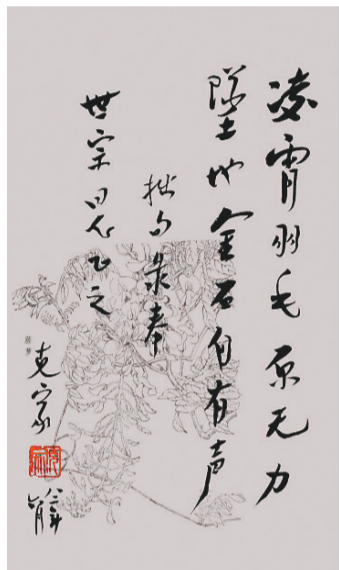 凌霄羽毛原无力
坠地金石自有声
拙句录奉
世宗同志正之
克家